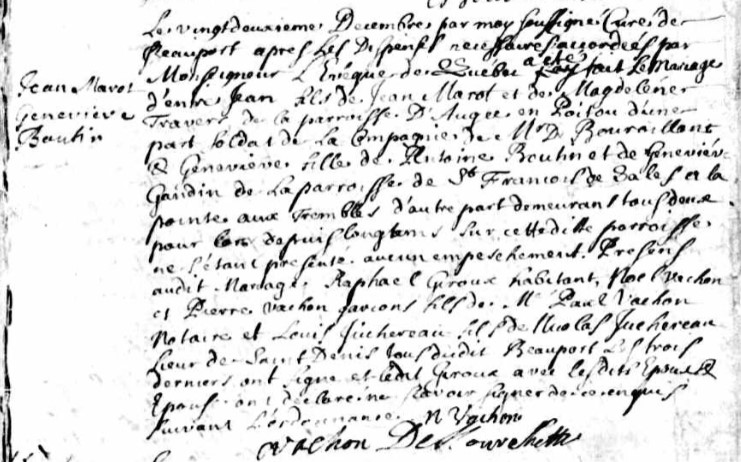 Jean Marot
Genevieve
Boutin
Le vingtdeuxieme Decembre par moy soussigné Curé de
Beauport apres les Dispenses necessaires accordées par
Monseigneur L'Eveque de Quebec a eté fait le Mariage
d'entre Jean fils de Jean Marot et de Magdelene
Travers de la parroisse D'Augee en Poitou d'une
part soldat de la Compagnie de Mr D
& Genevieve fille de Antoine Boutin et de Geneviev
Gandin de la parroisse de St Francois de Sales et la
pointe aux Trembles d'autre part demeurans tous deux
pour lors depuis longtems sur cette ditte parroisse
ne s'etant presenté aucun empeschement. Presens
audit Mariage Raphael Giroux habitant, Noel Vachon
et Pierre Vachon garcons fils de Mr Paul Vachon
Notaire et Louis Juchereau fils de Nicolas Juchereau
sieur de Saint Denis tous dudit Beauport les trois
derniers ont signé et ledit Giroux avec lesdits Epoux &
Epouse ont declaré ne scavoir signer de ce enquis
suivant L'ordonnance. N Vachon
vachon